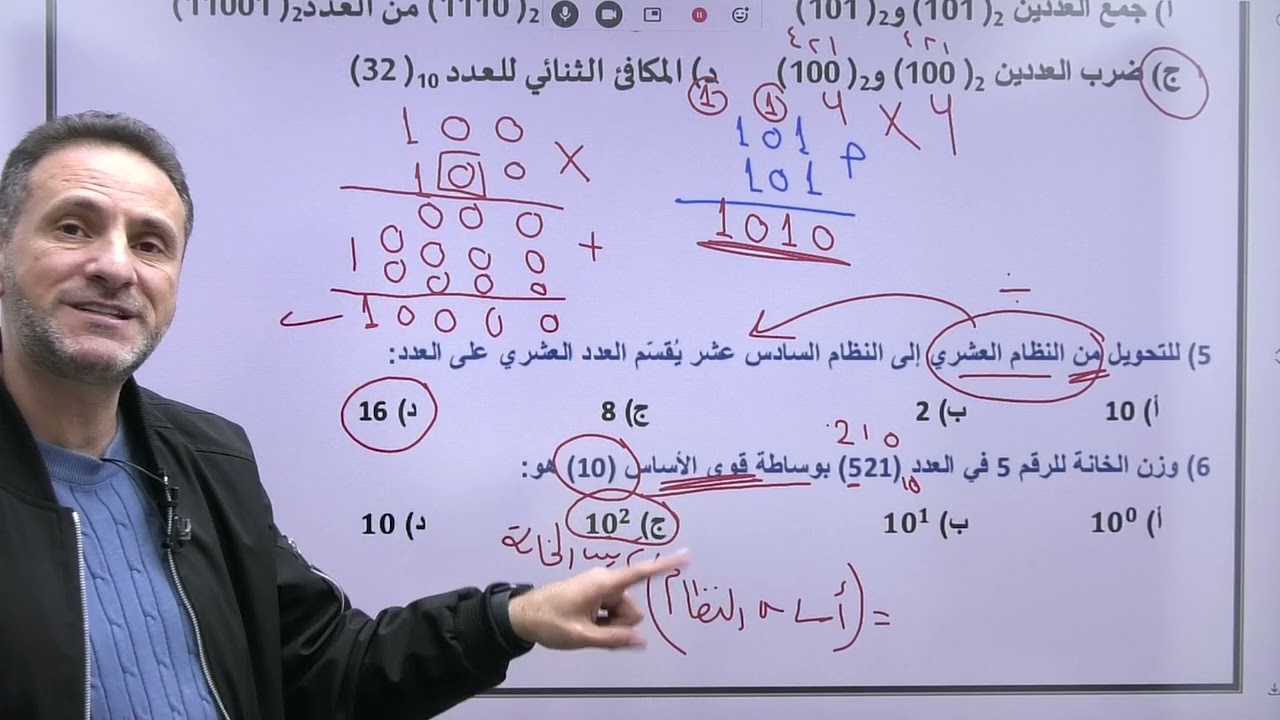 أ) جمع العددين (101)₂ و(101)₂ (1110)₂ من العدد (11001)₂
٤ ٢ ١ ٤ ٢ ١
ج) ضرب العددين (100)₂ و(100)₂ د) المكافئ الثنائي للعدد (32)₁₀
4 × 4
1 0 0
1 0 0 ×
0 0 0
1 0 0 0 0 +
0 0 0 0
1 0 0 0 0
1 1
1 0 1
1 0 1
1 0 1 0
÷
5) للتحويل من النظام العشري إلى النظام السادس عشر يُقسَم العدد العشري على العدد:
أ) 10 ب) 2 ج) 8 د) 16
2 1 0
6) وزن الخانة للرقم 5 في العدد (521)₁₀ بوساطة قوى الأساس (10) هو:
أ) 10⁰ ب) 10¹ ج) 10² د) 10
الخانة
= (أساس النظام)